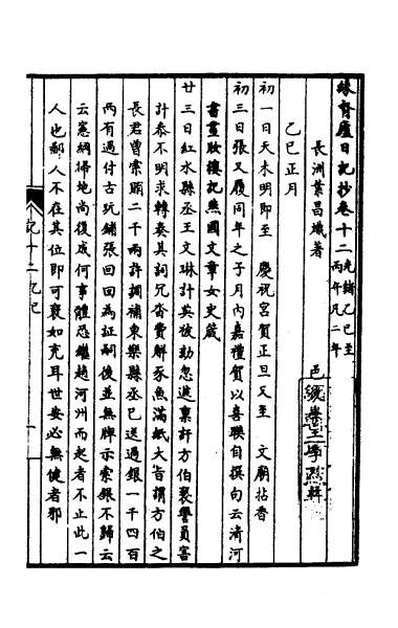 緣督廬日記抄卷十二光緒乙巳至丙午凡二年
長洲葉昌熾著
邑後學王季烈輯
乙巳正月
初一日天未明即至 慶祝宮賀正旦又至 文廟拈香
初三日張又履同年之子月內嘉禮賀以喜聯自撰句云清河
書畫妝樓記燕國文章女史箴
廿三日紅水縣丞王文琳計典被劾忽進稟訐方伯褻譽員害
計參不明求轉奏其詞冗沓費解豕魚滿紙大旨謂方伯之
長君曾索賄二千兩許調補東樂縣丞已送過銀一千四百
兩有過付古玩鋪張回回為証嗣後並無牌示索銀不歸云
云憲綱掃地尚復成何事體恐繼趙河州而起者不止此一
人也鄙人不在其位即可褎如充耳世安必無健者邪
記十二乙巳
一